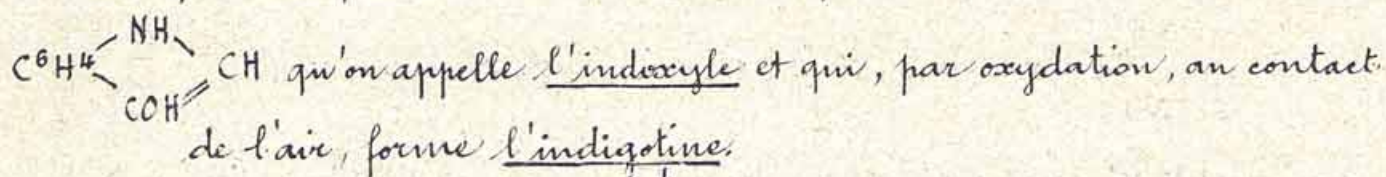 NH
C⁶H⁴ CH qu'on appelle l'indoxyle et qui, par oxydation, au contact
COH
de l'air, forme l'indigotine.